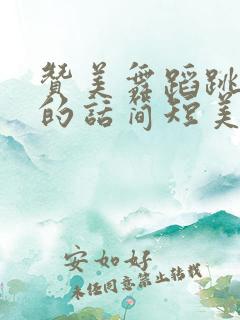 赞美舞蹈跳
的话简短美
安如好
未经同意禁止转载